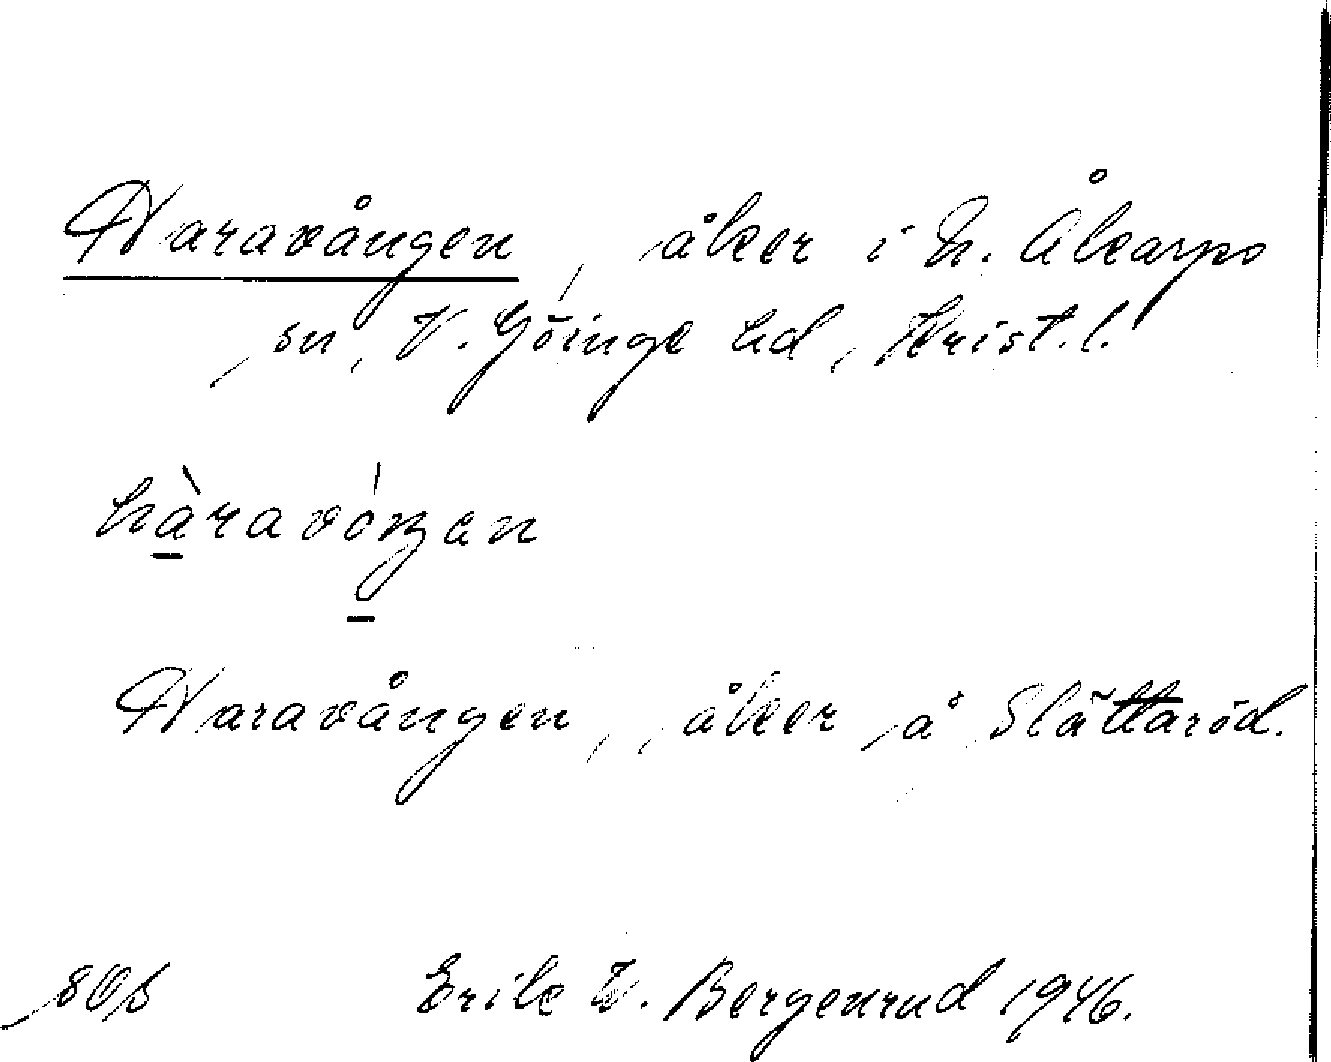 Haravången, åker i N. Åkarps
sn, V. Göinge hd, Krist. l.
hàravóŋen
Haravången, åker å Slättaröd.
Erik W. Bergenrud 1946.